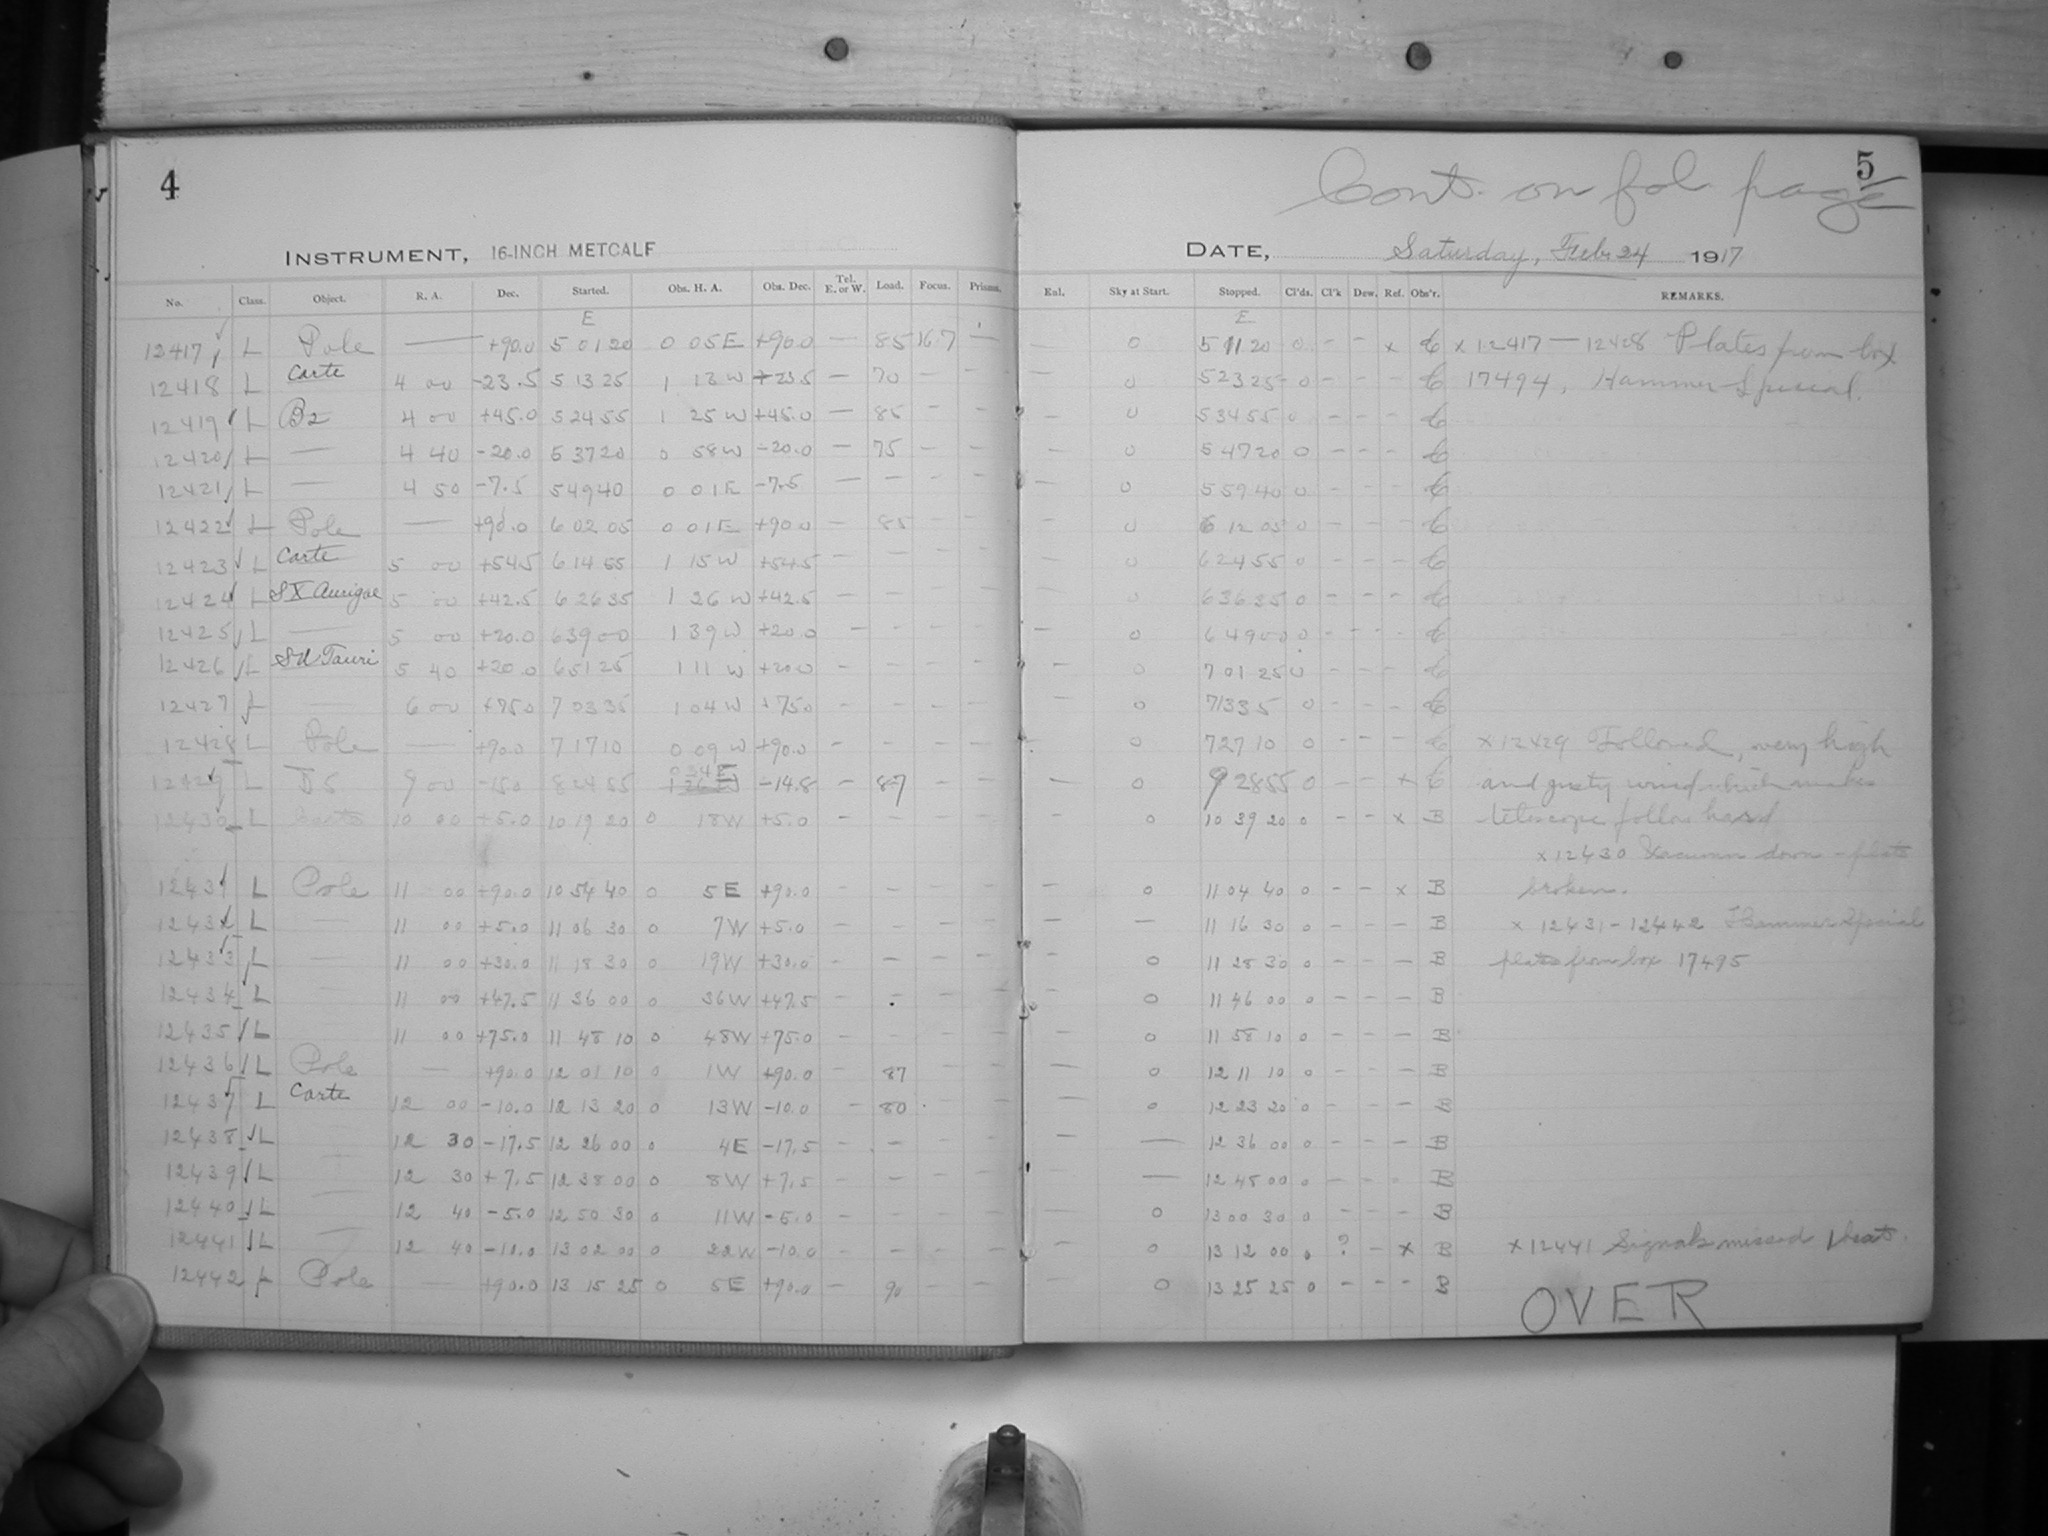 4
INSTRUMENT, 16-INCH METCALF
No. Class. Object. R. A. Dec. Started. Obs. H. A. Obs. Dec. Tel. E. or W. Load. Focus. Prisms.
E
12417 L Pole — +90.0 5 01 20 0 05 E +90.0 — 85 16.7 —
12418 L Carte 4 00 -23.5 5 13 25 1 13 W -23.5 — 70 - -
12419 L B2 4 00 +45.0 5 24 55 1 25 W +45.0 — 85 - -
12420 L — 4 40 -20.0 5 37 20 0 58 W -20.0 — 75 - -
12421 L — 4 50 -7.5 5 49 40 0 01 E -7.5 — - - -
12422 L Pole — +90.0 6 02 05 0 01 E +90.0 - 85 - -
12423 L Carte 5 00 +54.5 6 14 55 1 15 W +54.5 - - - -
12424 L SX Aurigae 5 00 +42.5 6 26 35 1 26 W +42.5 - - - -
12425 L — 5 00 +20.0 6 39 00 1 39 W +20.0 - - - -
12426 L SU Tauri 5 40 +20.0 6 51 25 1 11 W +20.0 - - - -
12427 L — 6 00 +75.0 7 03 35 1 04 W +75.0 - - - -
12428 L Pole — +90.0 7 17 10 0 09 W +90.0 - - - -
12429 L D5 9 00 -15.0 8 24 55 0 34 E -14.8 - 87 - -
12430 L 10 00 +5.0 10 19 20 0 18 W +5.0 - - - -
12431 L Pole 11 00 +90.0 10 54 40 0 5 E +90.0 - - - -
12432 L — 11 00 +5.0 11 06 30 0 7 W +5.0 - - - -
12433 L — 11 00 +30.0 11 18 30 0 19 W +30.0 - - - -
12434 L — 11 00 +47.5 11 36 00 0 36 W +47.5 - - - -
12435 L 11 00 +75.0 11 48 10 0 48 W +75.0 - - - -
12436 L Pole — +90.0 12 01 10 0 1 W +90.0 - 87 - -
12437 L Carte 12 00 -10.0 12 13 20 0 13 W -10.0 - 80 - -
12438 L 12 30 -17.5 12 26 00 0 4 E -17.5 - - - -
12439 L — 12 30 +7.5 12 38 00 0 8 W +7.5 - - - -
12440 L — 12 40 -5.0 12 50 30 0 11 W -5.0 - - - -
12441 L — 12 40 -10.0 13 02 00 0 22 W -10.0 - - - -
12442 L Pole — +90.0 13 15 25 0 5 E +90.0 - 90 - -
5
Cont. on fol. page
DATE, Saturday, Feb. 24 1917
Enl. Sky at Start. Stopped. Cl'ds. Cl'k Dew. Ref. Obs'r. REMARKS.
E
— 0 5 11 20 0 - - x C x 12417 — 12428 Plates from box
— 0 5 23 25 0 - - - C 17494, Hammer Special.
— 0 5 34 55 0 - - - C
— 0 5 47 20 0 - - - C
— 0 5 59 40 0 - - - C
— 0 6 12 05 0 - - - C
— 0 6 24 55 0 - - - C
— 0 6 36 35 0 - - - C
— 0 6 49 00 0 - - - C
— 0 7 01 25 0 - - - C
— 0 7 13 35 0 - - - C
— 0 7 27 10 0 - - - C x 12429 Followed, very high
— 0 9 28 55 0 - - x C and gusty wind which makes
— 0 10 39 20 0 - - x B telescope follow hard
x 12430 Vacuum down - plate
— 0 11 04 40 0 - - x B broken.
— — 11 16 30 0 - - - B x 12431 - 12442 Hammer Special
— 0 11 28 30 0 - - - B plates from box 17495
— 0 11 46 00 0 - - - B
— 0 11 58 10 0 - - - B
— 0 12 11 10 0 - - - B
— 0 12 23 20 0 - - - B
— — 12 36 00 0 - - - B
— — 12 48 00 0 - - - B
— 0 13 00 30 0 - - - B
— 0 13 12 00 0 ? - x B x 12441 Signals missed 1 beat.
— 0 13 25 25 0 - - - B
OVER